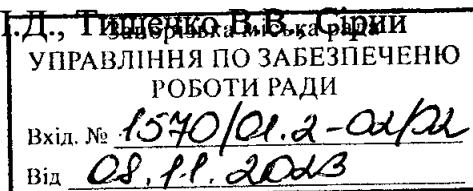 І.Д., Тищенко В.В., Сірий
Запорізька міська рада
УПРАВЛІННЯ ПО ЗАБЕЗПЕЧЕНЮ
РОБОТИ РАДИ
Вхід. № 1570/01.2-02/02
Від 08.11.2023